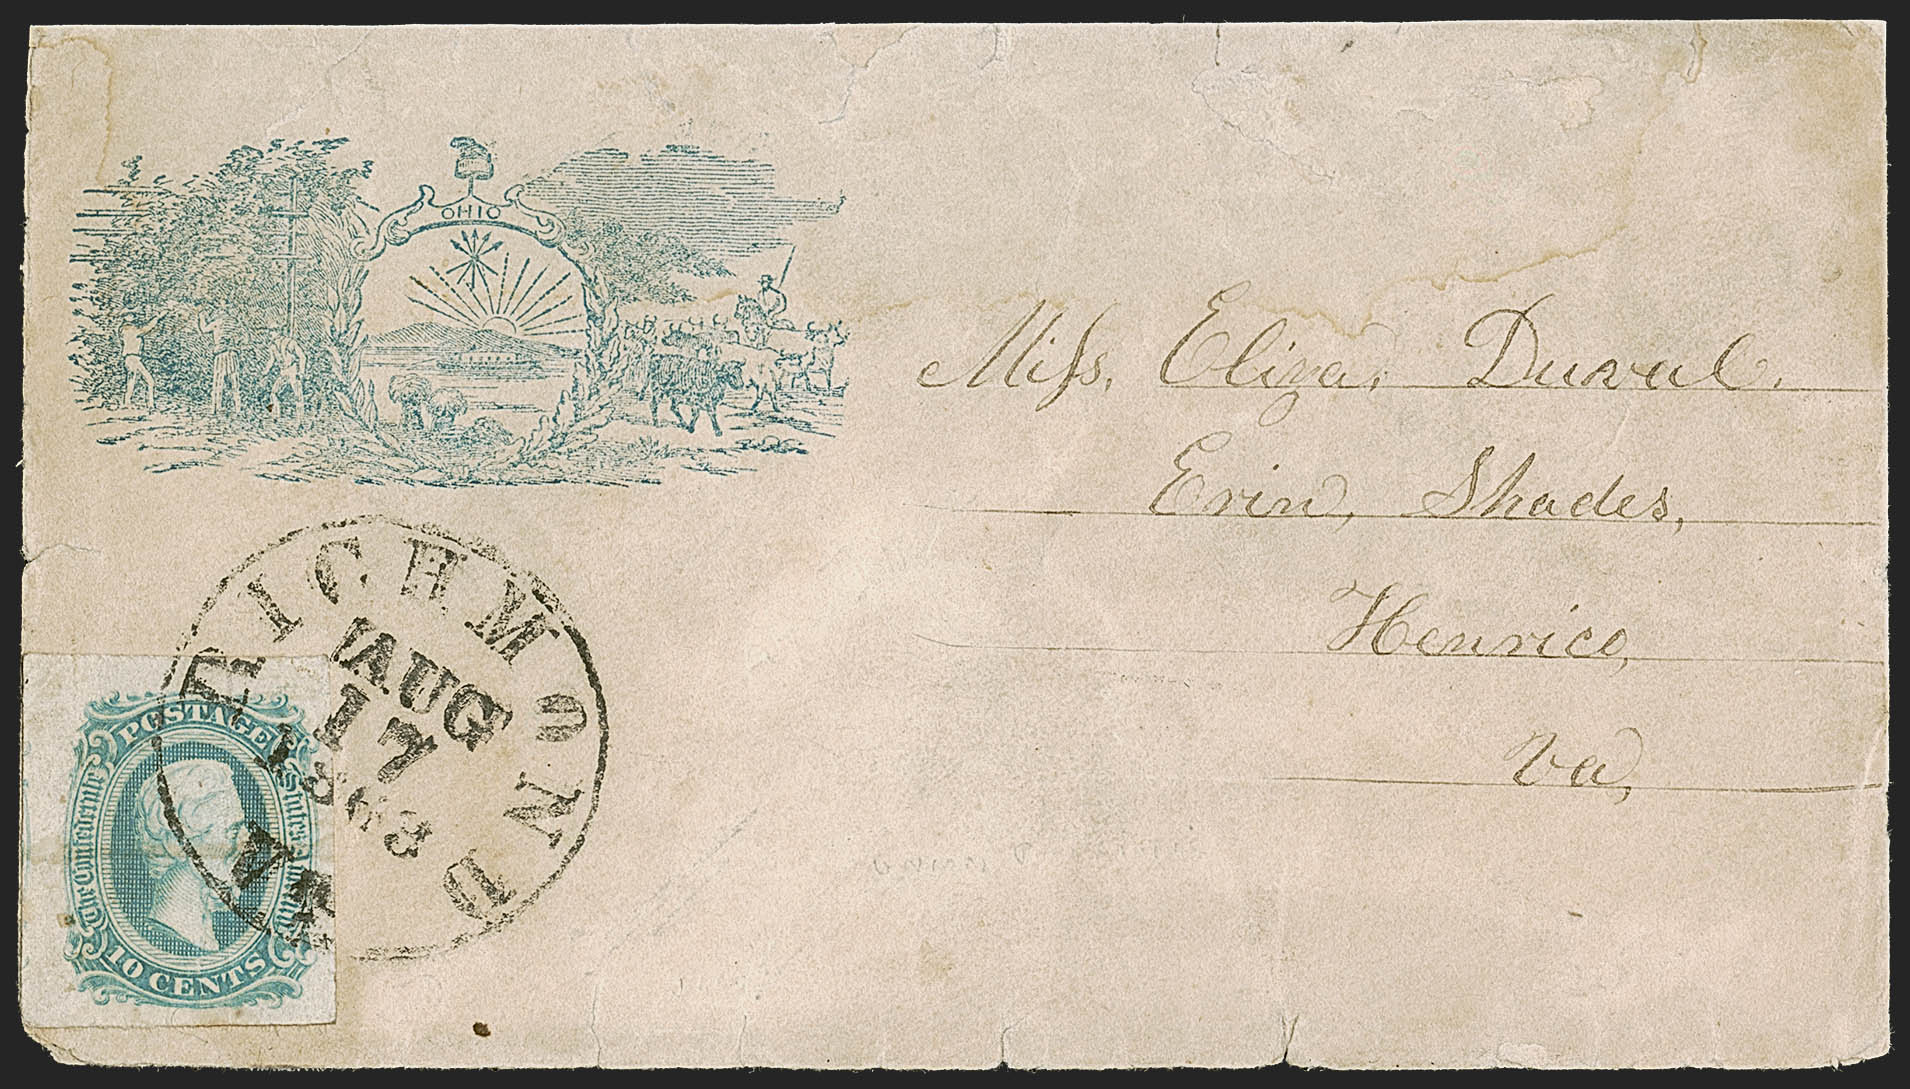 OHIO
Miss. Eliza, Duval.
Erin, Shades,
Henrico,
Va,
RICHMOND VA.
AUG
17
1863
POSTAGE
The Confederate States of America
10 CENTS